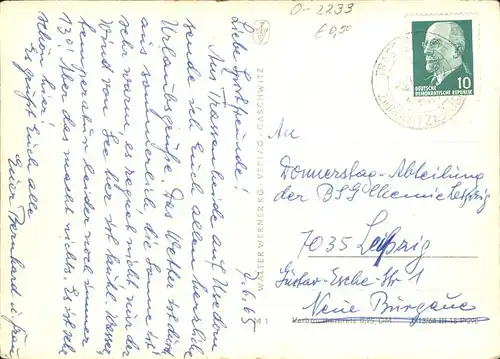 O-2233
€ 0,50
DEUTSCHE
DEMOKRATISCHE REPUBLIK
10
7.6.65
Liebe Sportfreunde!
Aus Trassenheide auf Usedom
sende ich Euch allen herzliche
Urlaubsgrüße. Das Wetter ist durch-
aus sommerlich, die Sonne ist
sehr warm, es regnet nicht nur der
Wind von See her ist kühl. Wasser-
temperatur leider noch immer
13°. Aber das macht nichts. Es ist sehr
schön hier!
Es grüßt Euch alle
Euer Bernhard u. Frau
WALTER WERNER KG. VERLAG. GASCHWITZ
An
Donnerstag-Abteilung
der BSG Chemie Leipzig
7035 Leipzig
Gustav-Esche-Str. 1
Neue Burgaue
Verbraucherpreis 0,25 DM